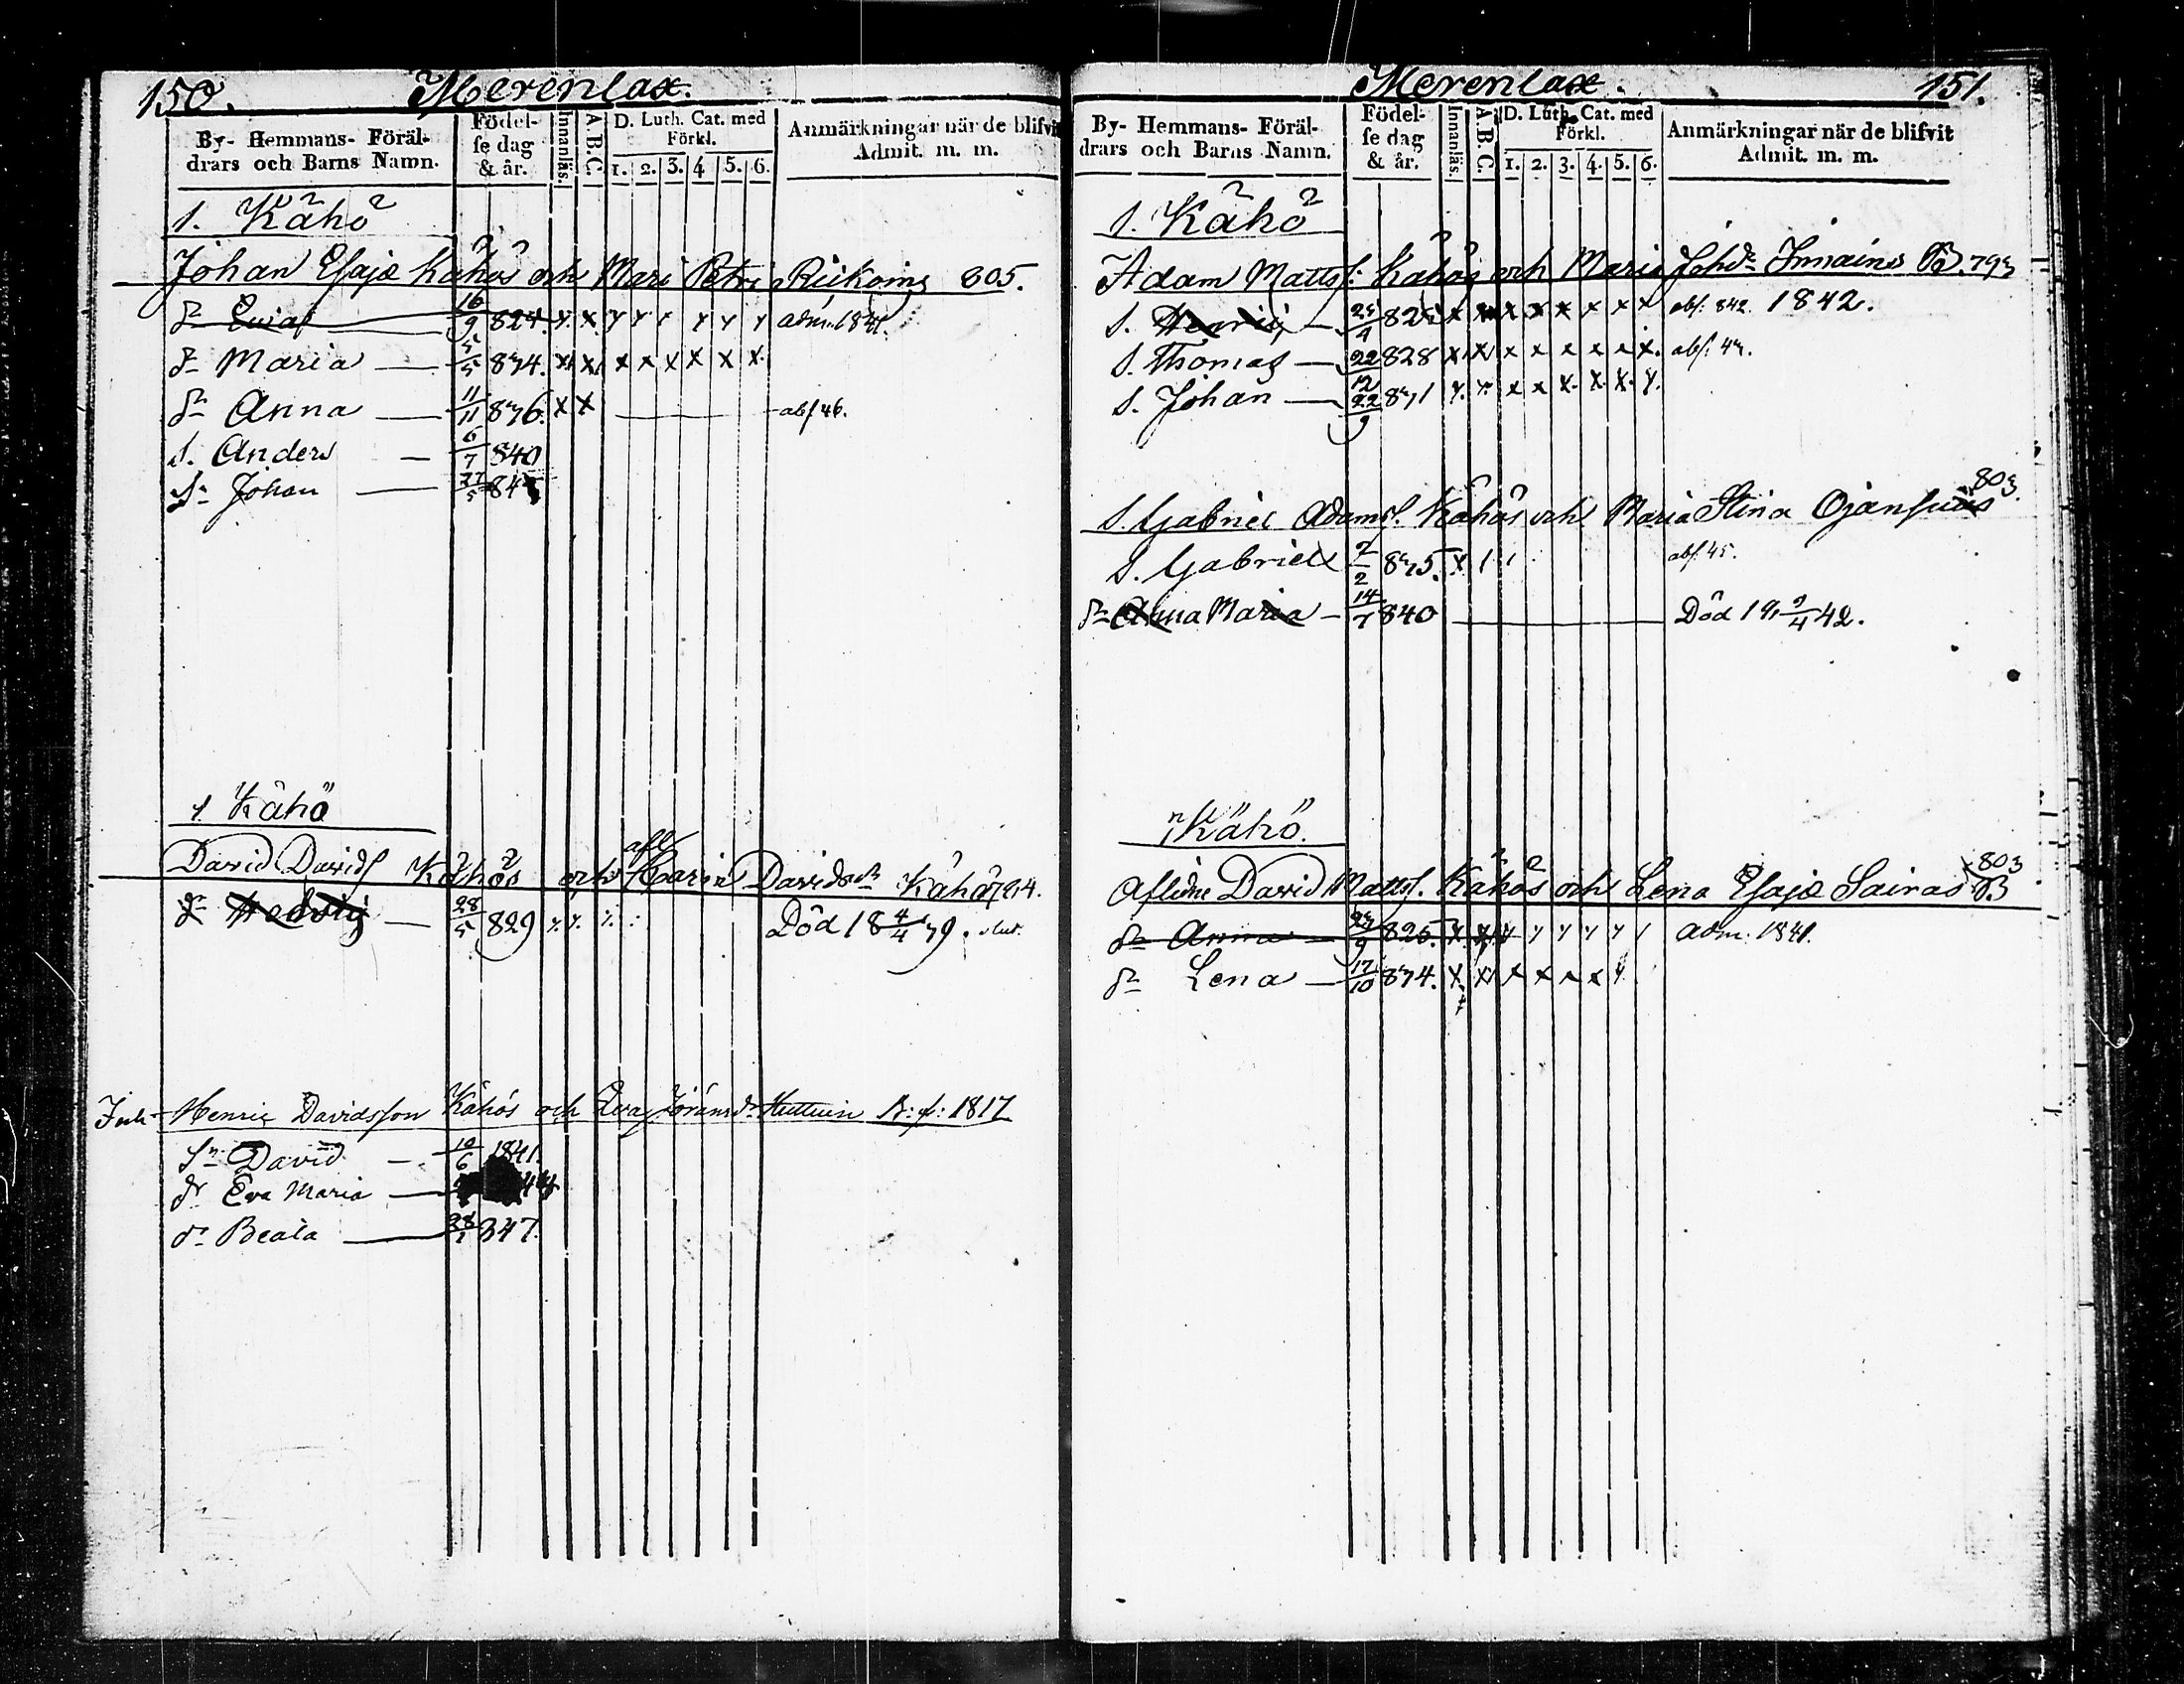 150. Merenlax.
By- Hemmans- Föräl-
drars och Barns Namn.
Födel-
se dag
& år.
Innanläs.
A.B.C.
D. Luth. Cat. med
Förkl.
1. 2. 3. 4 5. 6.
Anmärkningar när de blifvit
Admit. m. m.
1. Kähö
Johan Esajæ Kähös och Mari Petri 805.
dr 16/9 824. x x y y y y y y adm. 1841.
dr Maria — 5/5 834. x x x x x x x x
dr Anna — 11/11 836. x x — abs 46.
S. Anders — 6/7 840
Sn Johan — 27/5 84
1 Kähö
David Davids Kähös och afl. Karin Davidsdr Kähö 794.
dr Hedvig — 28/5 829 Död 18 4/4 39.
Henric Davidsson Kähös och Eva Jöransdr B: f: 1817
Sn David — 10/6 1841.
dr Eva Maria — 44
dr Beata — 28/1 847.
Merenlax. 151.
By- Hemmans- Föräl-
drars och Barns Namn.
Födel-
se dag
& år.
Innanläs.
A.B.C.
D. Luth. Cat. med
Förkl.
1. 2. 3. 4. 5. 6.
Anmärkningar när de blifvit
Admit. m. m.
1. Kähö
Adam Mattss: Kähös och Maria Johdr Immaines B. 793
S. Henric — 82 x x x x x x x x abs: 842. 1842.
S. Thomas — 22/12 828 x x x x x x x x. abs: 43.
S. Johan — 22/9 831 x x x x x x x x.
S. Gabriel Adamss. Kähös och Maria Stina Ojansuus 803.
S. Gabriel 7/2 835. x / / abs: 45.
dr Anna Maria — 14/7 840 — Död 42.
1 Kähö.
Aflidne David Mattss. Kähös och Lena Esajæ Sairas B 803
dr Anna — 23/9 825. x x x y y y y / Adm. 1841.
dr Lena — 17/10 834. x x x x x x y